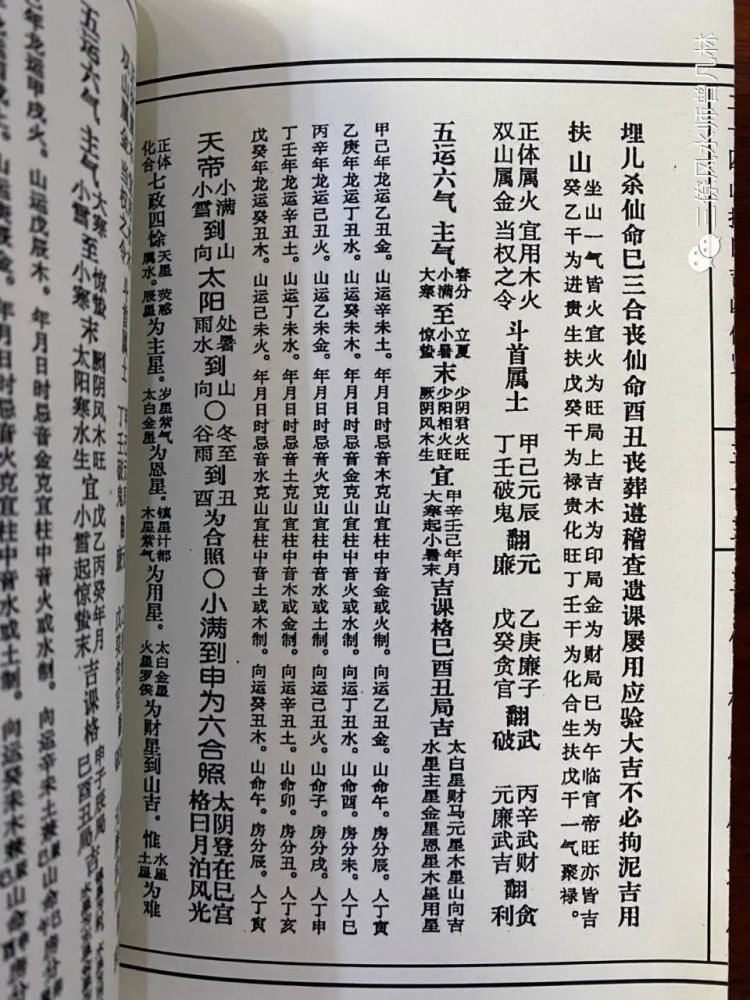 埋儿杀仙命巳三合丧仙命酉丑丧葬遵稽查遗课屡用应验大吉不必拘泥吉用
扶山
坐山一气皆火宜火为旺局上吉木为印局金为财局巳为午临官帝旺亦皆吉
癸乙干为进贵生扶戊癸干为禄贵化旺丁壬干为化合生扶戊干一气聚禄。
正体属火 宜用木火
双山属金 当权之令
斗首属土
甲己元辰
丁壬破鬼
翻元
廉
乙庚廉子
戊癸贪官
翻武
破
丙辛武财
元廉武吉
翻贪
利
五运六气 主气
春分
小满
大寒
至
立夏
小暑
惊蛰
末
少阴君火旺
少阳相火旺
厥阴风木生
宜
甲辛壬己年月
大寒起小暑末
吉课格巳酉丑局吉
太白星财马元星木星山向吉
水星主星金星恩星木星用星
甲己年龙运乙丑金。山运辛未土。年月日时忌音木克山宜柱中音金或火制。向运乙丑金。山命午。房分辰。人丁寅
乙庚年龙运丁丑水。山运癸未木。年月日时忌音金克山宜柱中音火或水制。向运丁丑水。山命酉。房分未。人丁巳
丙辛年龙运己丑火。山运乙未金。年月日时忌音火克山宜柱中音水或土制。向运己丑火。山命子。房分戌。人丁申
丁壬年龙运辛丑土。山运丁未水。年月日时忌音土克山宜柱中音木或金制。向运辛丑土。山命卯。房分丑。人丁亥
戊癸年龙运癸丑木。山运己未火。年月日时忌音水克山宜柱中音土或木制。向运癸丑木。山命午。房分辰。人丁寅
天帝
小满到山
小雪 向
太阳
处暑到山
雨水 向
〇
冬至到丑
谷雨 酉
为合照〇小满到申为六合照
太阴登在巳宫
格曰月泊风光
正体
化合
七政四馀
天星 荧惑
属水。辰星
为主星。
岁星紫气
太白金星
为恩星。
镇星计都
木星紫气
为用星。
太白金星
火星罗侯
为财星到山吉。惟
水星
土星
为难
五运六气 主气
大寒
小雪
至
惊蛰
小寒
末
厥阴风木旺
太阳寒水生
宜
戊乙丙癸年月
小雪起惊蛰末
吉课格
申子辰局
巳酉丑局
吉
三僚风水师曾凡林